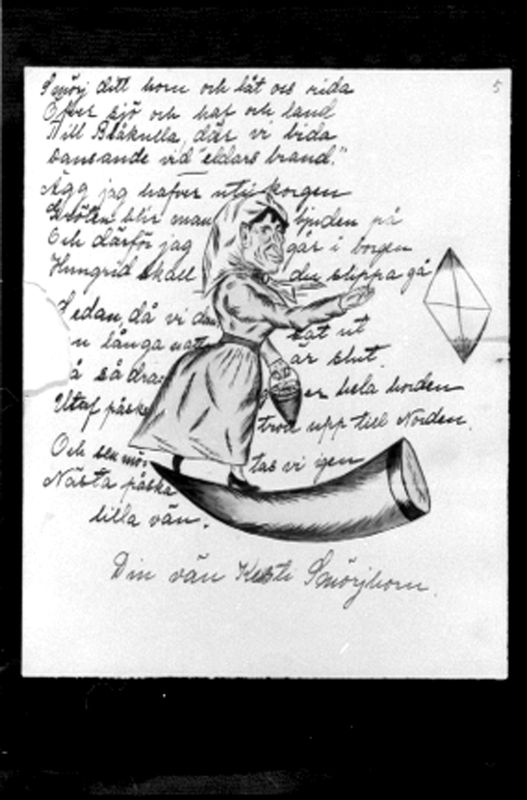 5
Smörj ditt horn och låt oss rida
Öfver sjö och haf och land
Till Blåkulla, där vi bida
dansande vid "eldars brand."
Ägg jag hafver uti korgen
Gröten blir man bjuden på
Och därför jag går i borgen
Hungrig skall du slippa gå
Sedan, då vi dan sat ut
n långa natt är slut.
å så dra er hela horden
Utaf påske trod upp till Norden.
Och sen mö tas vi igen
Nästa påska
lilla vän.
Din vän Kersti Smörjhorn.